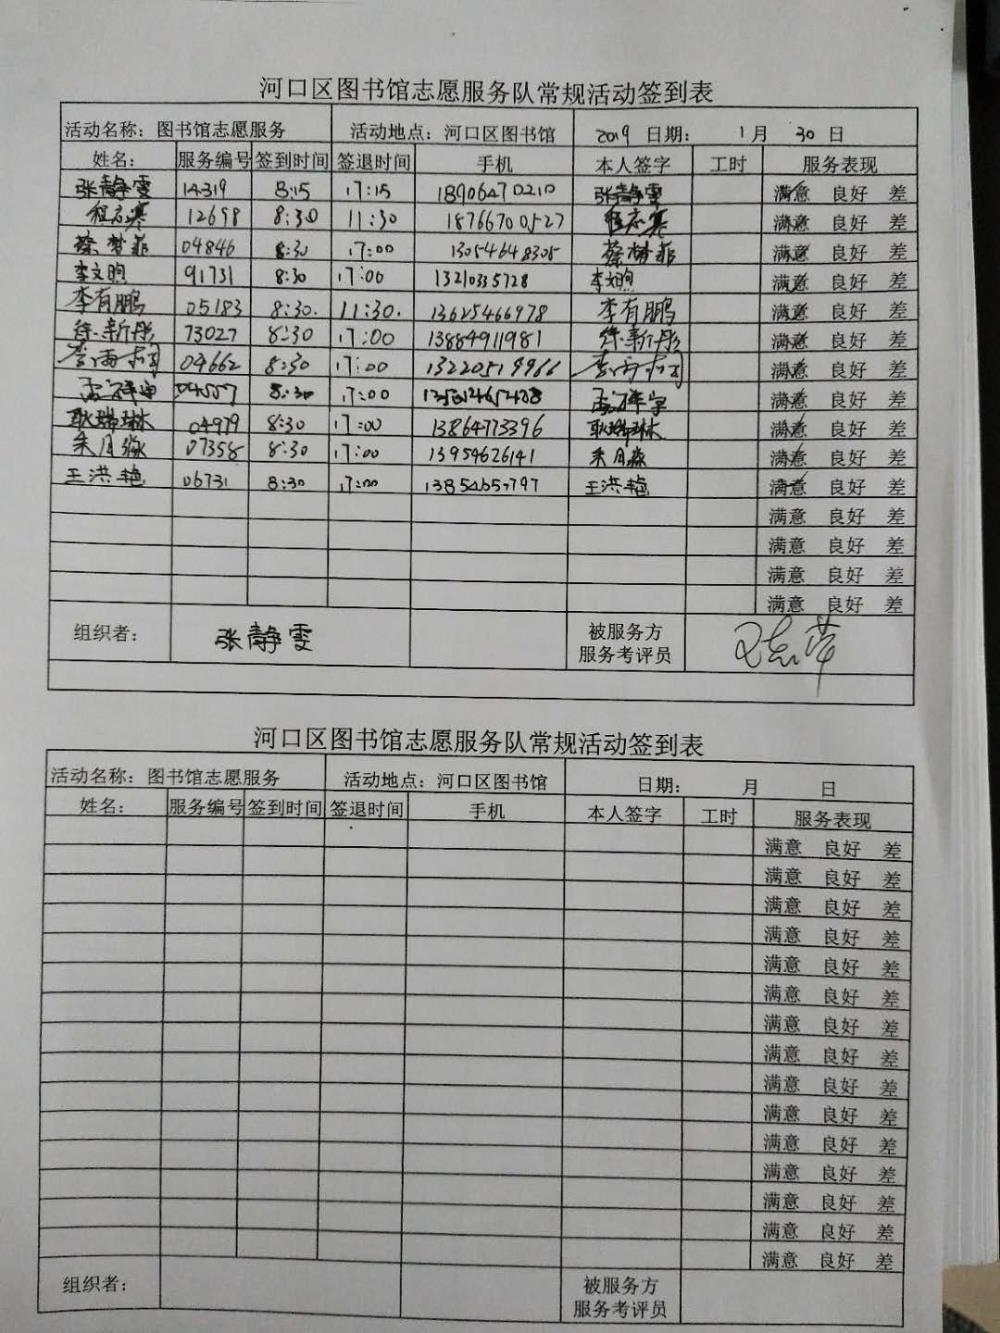 河口区图书馆志愿服务队常规活动签到表
活动名称：图书馆志愿服务 活动地点：河口区图书馆 2019 日期： 1月 30日
姓名： 服务编号 签到时间 签退时间 手机 本人签字 工时 服务表现
张静雯 14319 8:15 17:15 18906470210 张静雯 满意 良好 差
程志寒 12698 8:30 11:30 18766700527 程志寒 满意 良好 差
蔡梦菲 04846 8:30 17:00 13054648305 蔡梦菲 满意 良好 差
李文煦 91731 8:30 17:00 13210335728 李文煦 满意 良好 差
李有鹏 05183 8:30. 11:30. 13625466978 李有鹏 满意 良好 差
徐新彤 73027 8:30 17:00 13884911981 徐新彤 满意 良好 差
04662 8:30 17:00 13220519966 满意 良好 差
8:30 17:00 满意 良好 差
耿瑞琳 04979 8:30 17:00 13864773396 耿瑞琳 满意 良好 差
07358 8:30 17:00 13954626141 满意 良好 差
王洪艳 06731 8:30 17:00 王洪艳 满意 良好 差
满意 良好 差
满意 良好 差
满意 良好 差
满意 良好 差
组织者： 张静雯 被服务方
服务考评员
河口区图书馆志愿服务队常规活动签到表
活动名称：图书馆志愿服务 活动地点：河口区图书馆 日期： 月 日
姓名： 服务编号 签到时间 签退时间 手机 本人签字 工时 服务表现
满意 良好 差
满意 良好 差
满意 良好 差
满意 良好 差
满意 良好 差
满意 良好 差
满意 良好 差
满意 良好 差
满意 良好 差
满意 良好 差
满意 良好 差
满意 良好 差
满意 良好 差
满意 良好 差
满意 良好 差
组织者： 被服务方
服务考评员